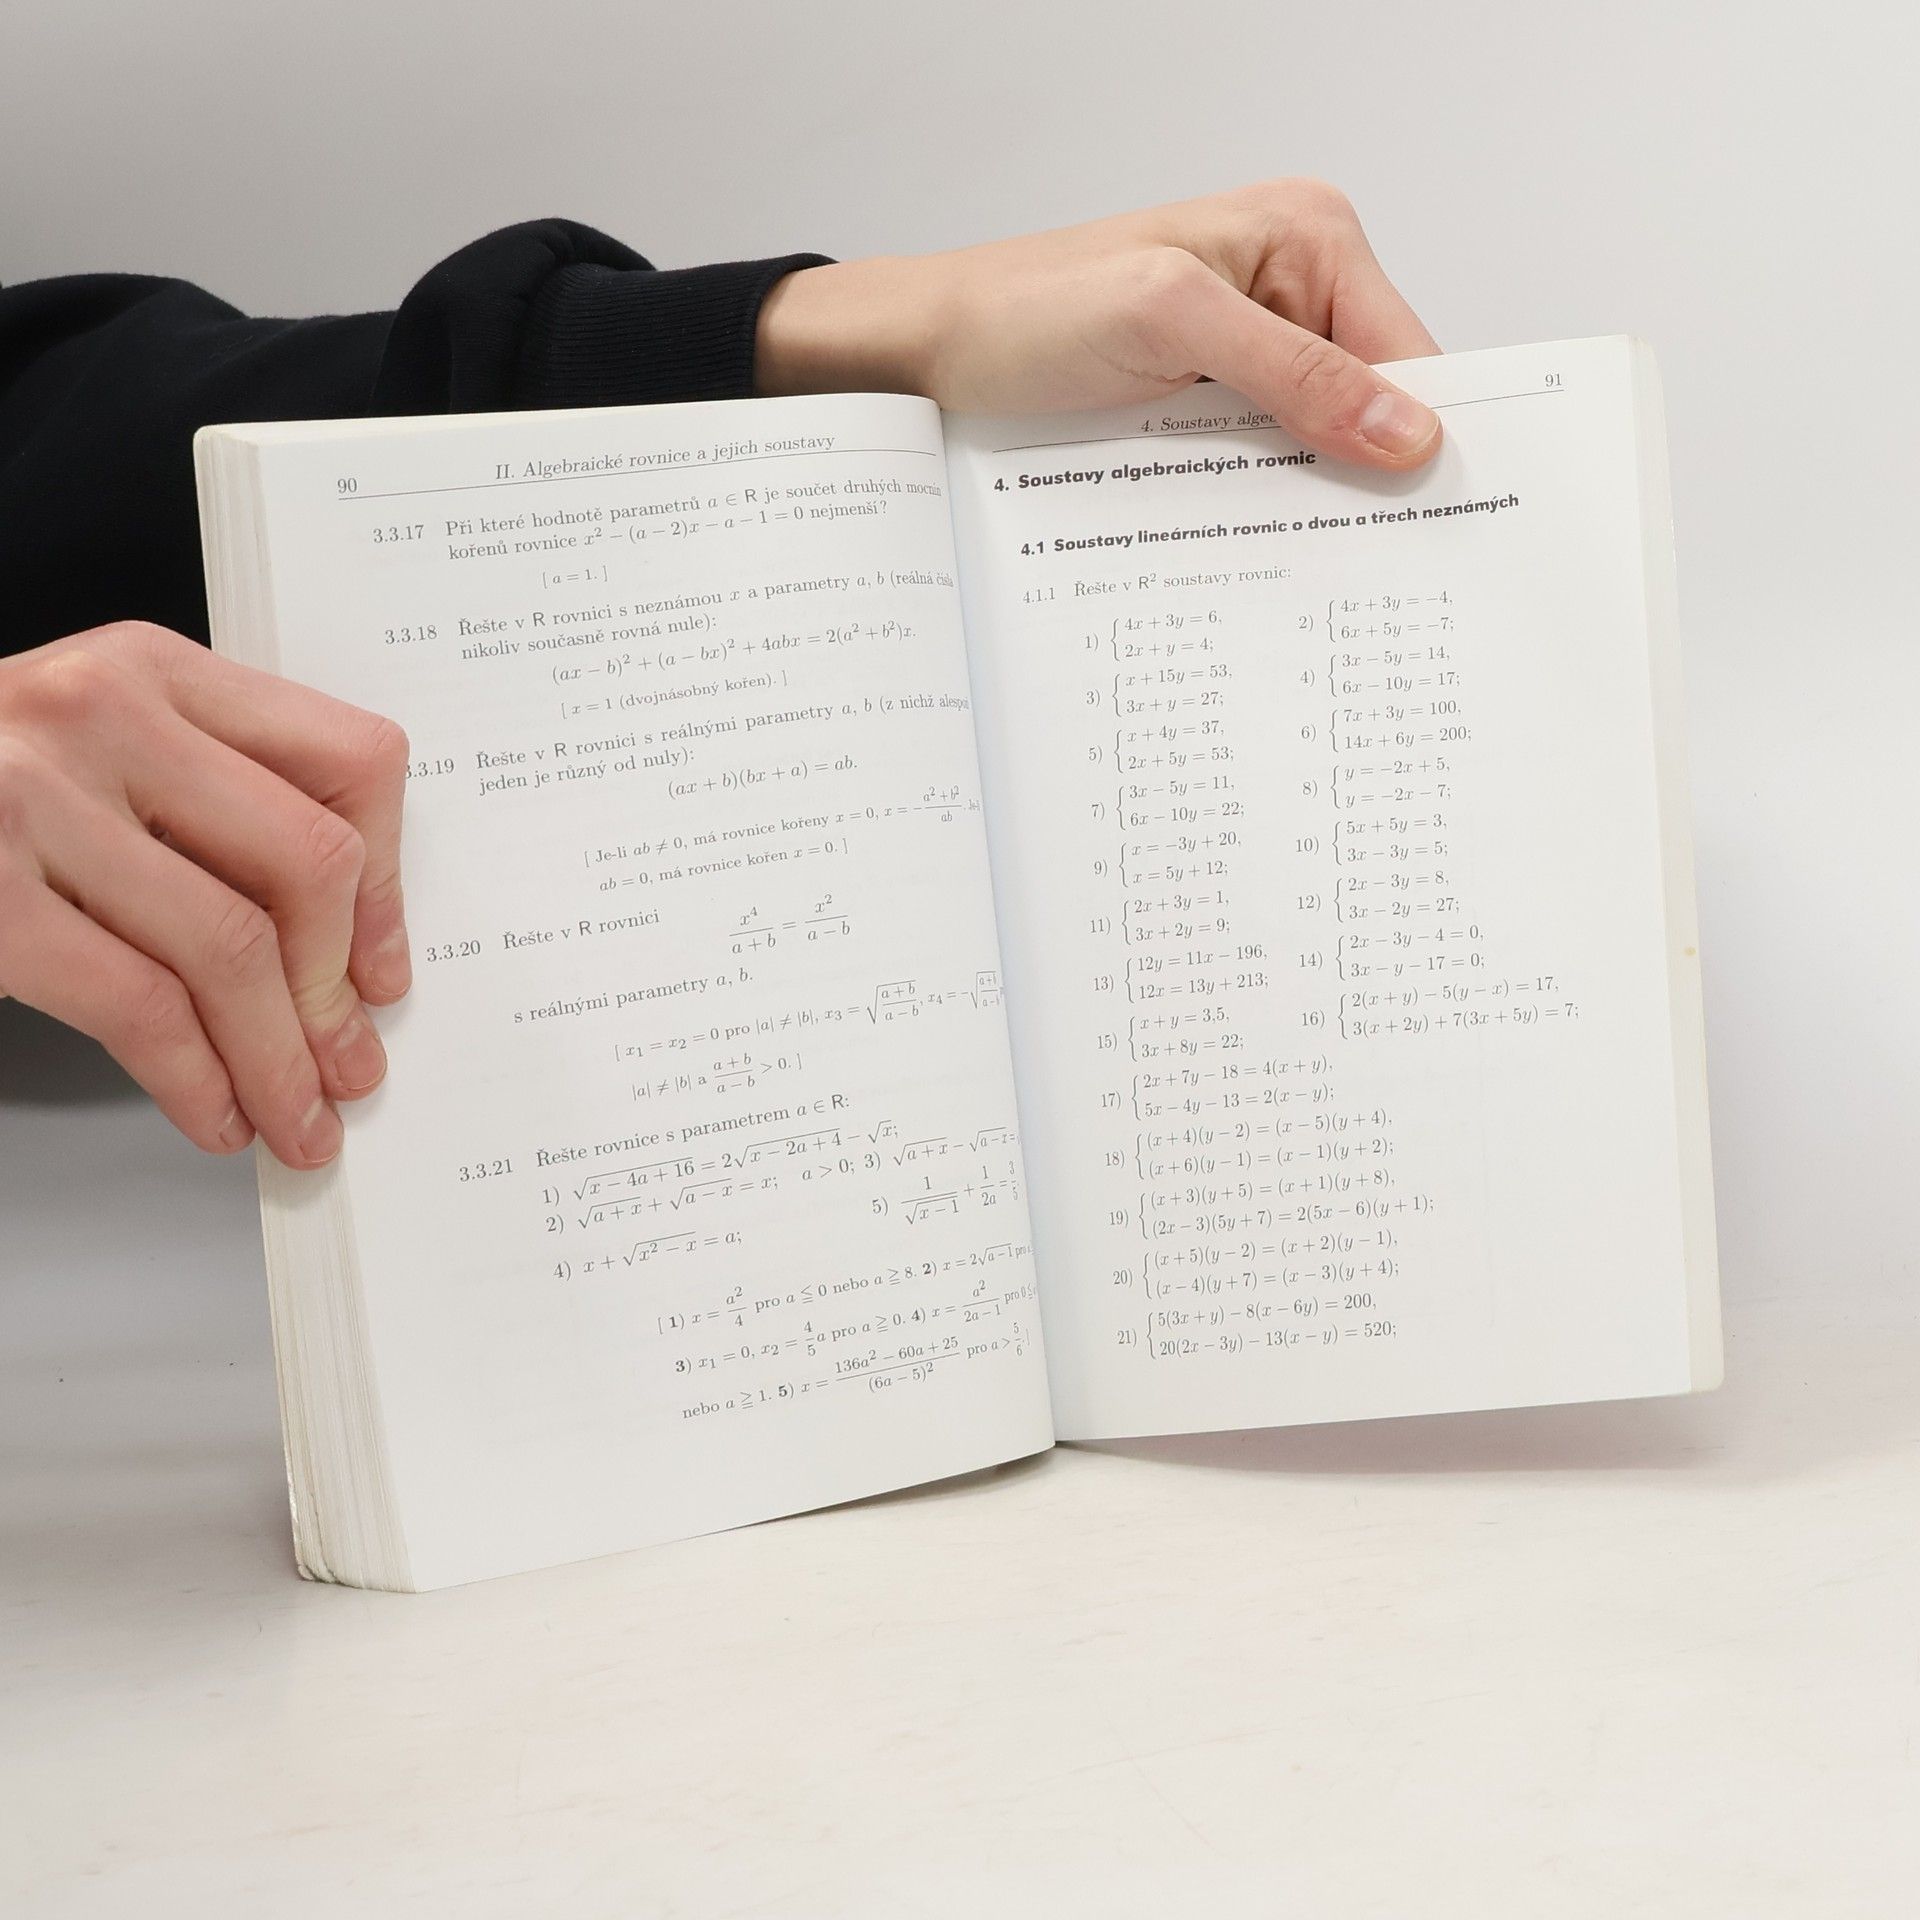 90 II. Algebraické rovnice a jejich soustavy
3.3.17 Při které hodnotě parametrů a ∈ R je součet druhých mocnin
kořenů rovnice x² − (a − 2)x − a − 1 = 0 nejmenší?
[ a = 1. ]
3.3.18 Řešte v R rovnici s neznámou x a parametry a, b (reálná čísla
nikoliv současně rovná nule):
(ax − b)² + (a − bx)² + 4abx = 2(a² + b²)x.
[ x = 1 (dvojnásobný kořen). ]
3.3.19 Řešte v R rovnici s reálnými parametry a, b (z nichž alespoň
jeden je různý od nuly):
(ax + b)(bx + a) = ab.
[ Je-li ab ≠ 0, má rovnice kořeny x = 0, x = −(a² + b²)/ab. Je-li
ab = 0, má rovnice kořen x = 0. ]
3.3.20 Řešte v R rovnici x⁴/(a + b) = x²/(a − b)
s reálnými parametry a, b.
[ x₁ = x₂ = 0 pro |a| ≠ |b|, x₃ = √((a + b)/(a − b)), x₄ = −√((a + b)/(a − b))
|a| ≠ |b| a (a + b)/(a − b) > 0. ]
3.3.21 Řešte rovnice s parametrem a ∈ R:
1) √(x − 4a + 16) = 2√(x − 2a + 4) − √x;
2) √(a + x) + √(a − x) = x; a > 0; 3) √(a + x) − √(a − x) =
4) x + √(x² − x) = a; 5) 1/√(x − 1) + 1/2a = 3/5
[ 1) x = a²/4 pro a ≦ 0 nebo a ≧ 8. 2) x = 2√(a − 1) pro
3) x₁ = 0, x₂ = 4/5 a pro a ≧ 0. 4) x = a²/(2a − 1) pro 0 ≦
nebo a ≧ 1. 5) x = (136a² − 60a + 25)/(6a − 5)² pro a > 5/6. ]
4. Soustavy 91
4. Soustavy algebraických rovnic
4.1 Soustavy lineárních rovnic o dvou a třech neznámých
4.1.1 Řešte v R² soustavy rovnic:
1) { 4x + 3y = 6, 2) { 4x + 3y = −4,
2x + y = 4; 6x + 5y = −7;
3) { x + 15y = 53, 4) { 3x − 5y = 14,
3x + y = 27; 6x − 10y = 17;
5) { x + 4y = 37, 6) { 7x + 3y = 100,
2x + 5y = 53; 14x + 6y = 200;
7) { 3x − 5y = 11, 8) { y = −2x + 5,
6x − 10y = 22; y = −2x − 7;
9) { x = −3y + 20, 10) { 5x + 5y = 3,
x = 5y + 12; 3x − 3y = 5;
11) { 2x + 3y = 1, 12) { 2x − 3y = 8,
3x + 2y = 9; 3x − 2y = 27;
13) { 12y = 11x − 196, 14) { 2x − 3y − 4 = 0,
12x = 13y + 213; 3x − y − 17 = 0;
15) { x + y = 3,5, 16) { 2(x + y) − 5(y − x) = 17,
3x + 8y = 22; 3(x + 2y) + 7(3x + 5y) = 7;
17) { 2x + 7y − 18 = 4(x + y),
5x − 4y − 13 = 2(x − y);
18) { (x + 4)(y − 2) = (x − 5)(y + 4),
(x + 6)(y − 1) = (x − 1)(y + 2);
19) { (x + 3)(y + 5) = (x + 1)(y + 8),
(2x − 3)(5y + 7) = 2(5x − 6)(y + 1);
20) { (x + 5)(y − 2) = (x + 2)(y − 1),
(x − 4)(y + 7) = (x − 3)(y + 4);
21) { 5(3x + y) − 8(x − 6y) = 200,
20(2x − 3y) − 13(x − y) = 520;